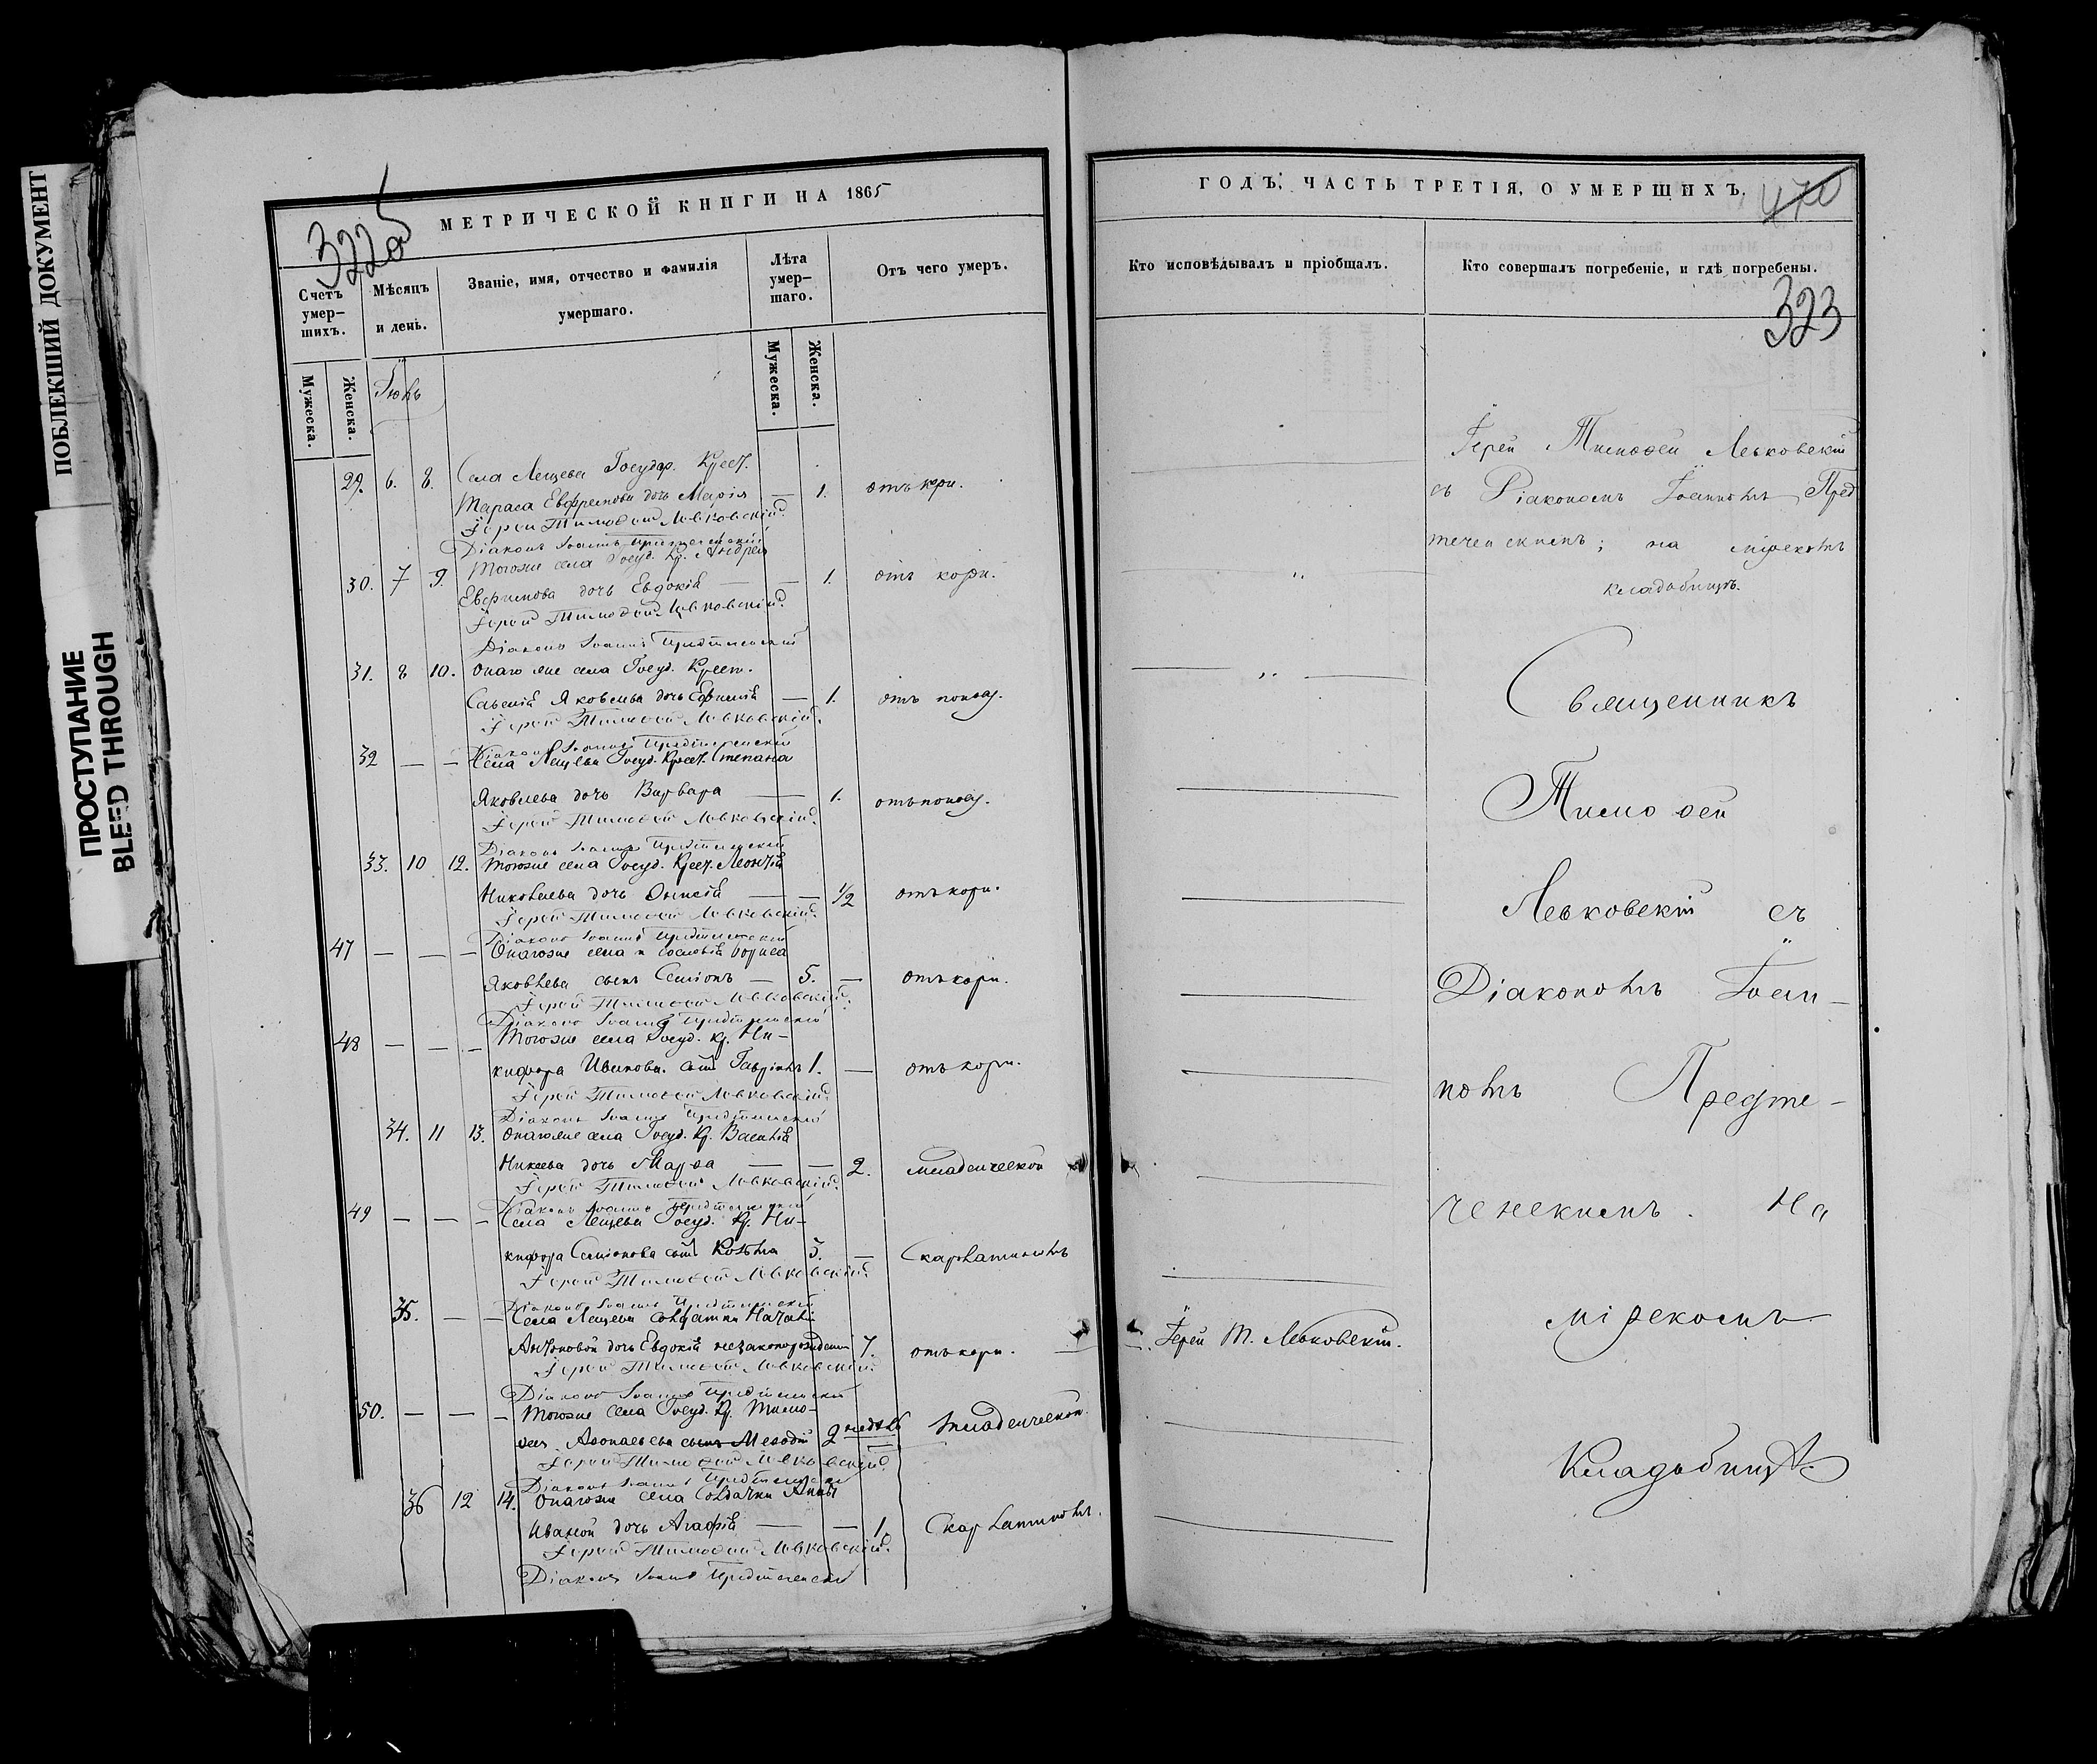 ПОБЛЕКШИЙ ДОКУМЕНТ
ПРОСТУПАНИЕ
BLEED THROUGH
322об
МЕТРИЧЕСКОЙ КНИГИ НА 1865
Счетъ умер-шихъ.
Мужеска.
Женска.
Мѣсяцъ и день.
Званіе, имя, отчество и фамилія умершаго.
Лѣта умер-шаго.
Мужеска.
Женска.
Отъ чего умеръ.
Іюнь
29. 6. 8. Села Лещева Государ. Крест.
Тараса Евфремова дочь Марія — 1. отъ кори.
Іерей Тимоѳей Левковскій.
Діаконъ Іоаннъ Предтеченскій
30. 7 9. Тогоже села Госуд. Кр. Андрея
Евфимова дочь Евдокія — — 1. отъ кори.
Іерей Тимоѳей Левковскій.
Діаконъ Іоаннъ Предтеченскій
31. 8 10. Онаго же села Госуд. Крест.
Савелія Яковлева дочь Ефимія — 1. отъ
Іерей Тимоѳей Левковскій.
Діаконъ Іоаннъ Предтеченскій
32 — — Села Лещева Госуд. Крест. Степана
Яковлева дочь Варвара — 1.
Іерей Тимоѳей Левковскій.
Діаконъ Іоаннъ Предтеченскій
33. 10 12. Тогоже села Госуд. Крест. Леонтія
Николаева дочь — — 1/2 отъ кори.
Іерей Тимоѳей Левковскій.
Діаконъ Іоаннъ Предтеченскій
47 — — — Онагоже села и сословія Бориса
Яковлева сынъ Семіонъ — 5. — отъ кори.
Іерей Тимоѳей Левковскій.
Діаконъ Іоаннъ Предтеченскій
48 — — — Тогоже села Госуд. Кр. Ни-
кифора Иванова. сынъ Гавріилъ 1. — отъ кори.
Іерей Тимоѳей Левковскій
Діаконъ Іоаннъ Предтеченскій
34. 11 13. Онагоже села Госуд. Кр. Василія
дочь Марѳа — — 2. младенческой
Іерей Тимоѳей Левковскій.
Діаконъ Іоаннъ Предтеченскій
49 — — — Села Лещева Госуд. Кр. Ни-
кифора Семіонова сынъ Козьма 3. — Скарлатиною
Іерей Тимоѳей Левковскій.
Діаконъ Іоаннъ Предтеченскій
35. — — Села Лещева Солдатки
Антоновой дочь Евдокія незаконорожден 7. отъ кори. —
Іерей Тимоѳей Левковскій
Діаконъ Іоаннъ Предтеченскій
50. — — — Тогоже села Госуд. Кр. Тимо-
ѳея сынъ Меѳодій 2 недѣль Младенческой.
Іерей Тимоѳей Левковскій
Діаконъ Іоаннъ Предтеченскій
36 12 14. Онагоже села Солдатки Анны
Иваной дочь Агафія — — 1. Скарлатиною.
Іерей Тимоѳей Левковскій.
Діаконъ Іоаннъ Предтеченскій
ГОДЪ, ЧАСТЬ ТРЕТІЯ, О УМЕРШИХЪ.
470
Кто исповѣдывалъ и пріобщалъ.
Кто совершалъ погребеніе, и гдѣ погребены.
323
Іерей Тимоѳей Левковскій
съ Діакономъ Іоанномъ Пред
теченскимъ; на мірскомъ
кладбищѣ.
Священникъ
Тимоѳей
Левковскій съ
Діакономъ Іоан-
номъ Предте-
ченскимъ. На
мірскомъ
Кладбищѣ.
Іерей Т. Левковскій.